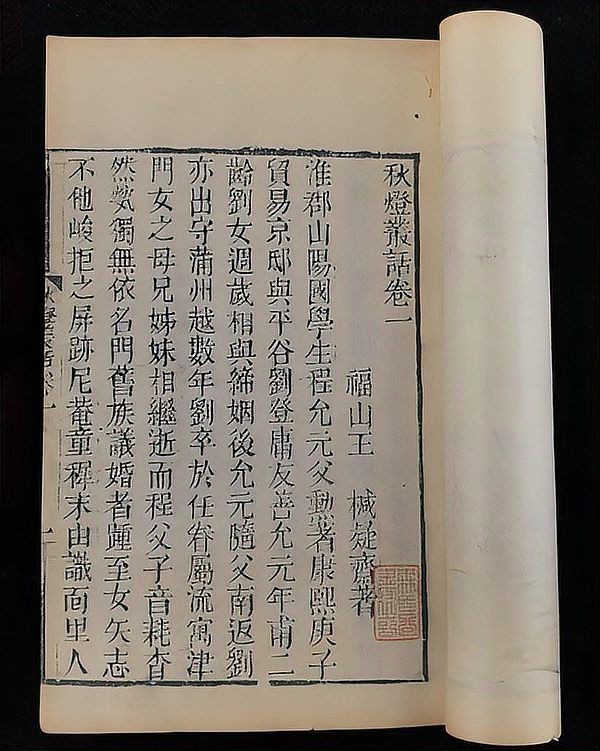 秋燈叢話卷一
福山王 槭凝齋著
淮郡山陽國學生程允元父勳著康熙庚子
貿易京邸與平谷劉登庸友善允元年甫二
齡劉女週歲相與締姻後允元隨父南返劉
亦出守蒲州越數年劉卒於任眷屬流寓津
門女之母兄姊妹相繼逝而程父子音耗杳
然煢獨無依名門舊族議婚者踵至女矢志
不他峻拒之屏跡尼菴童穉末由識面里人